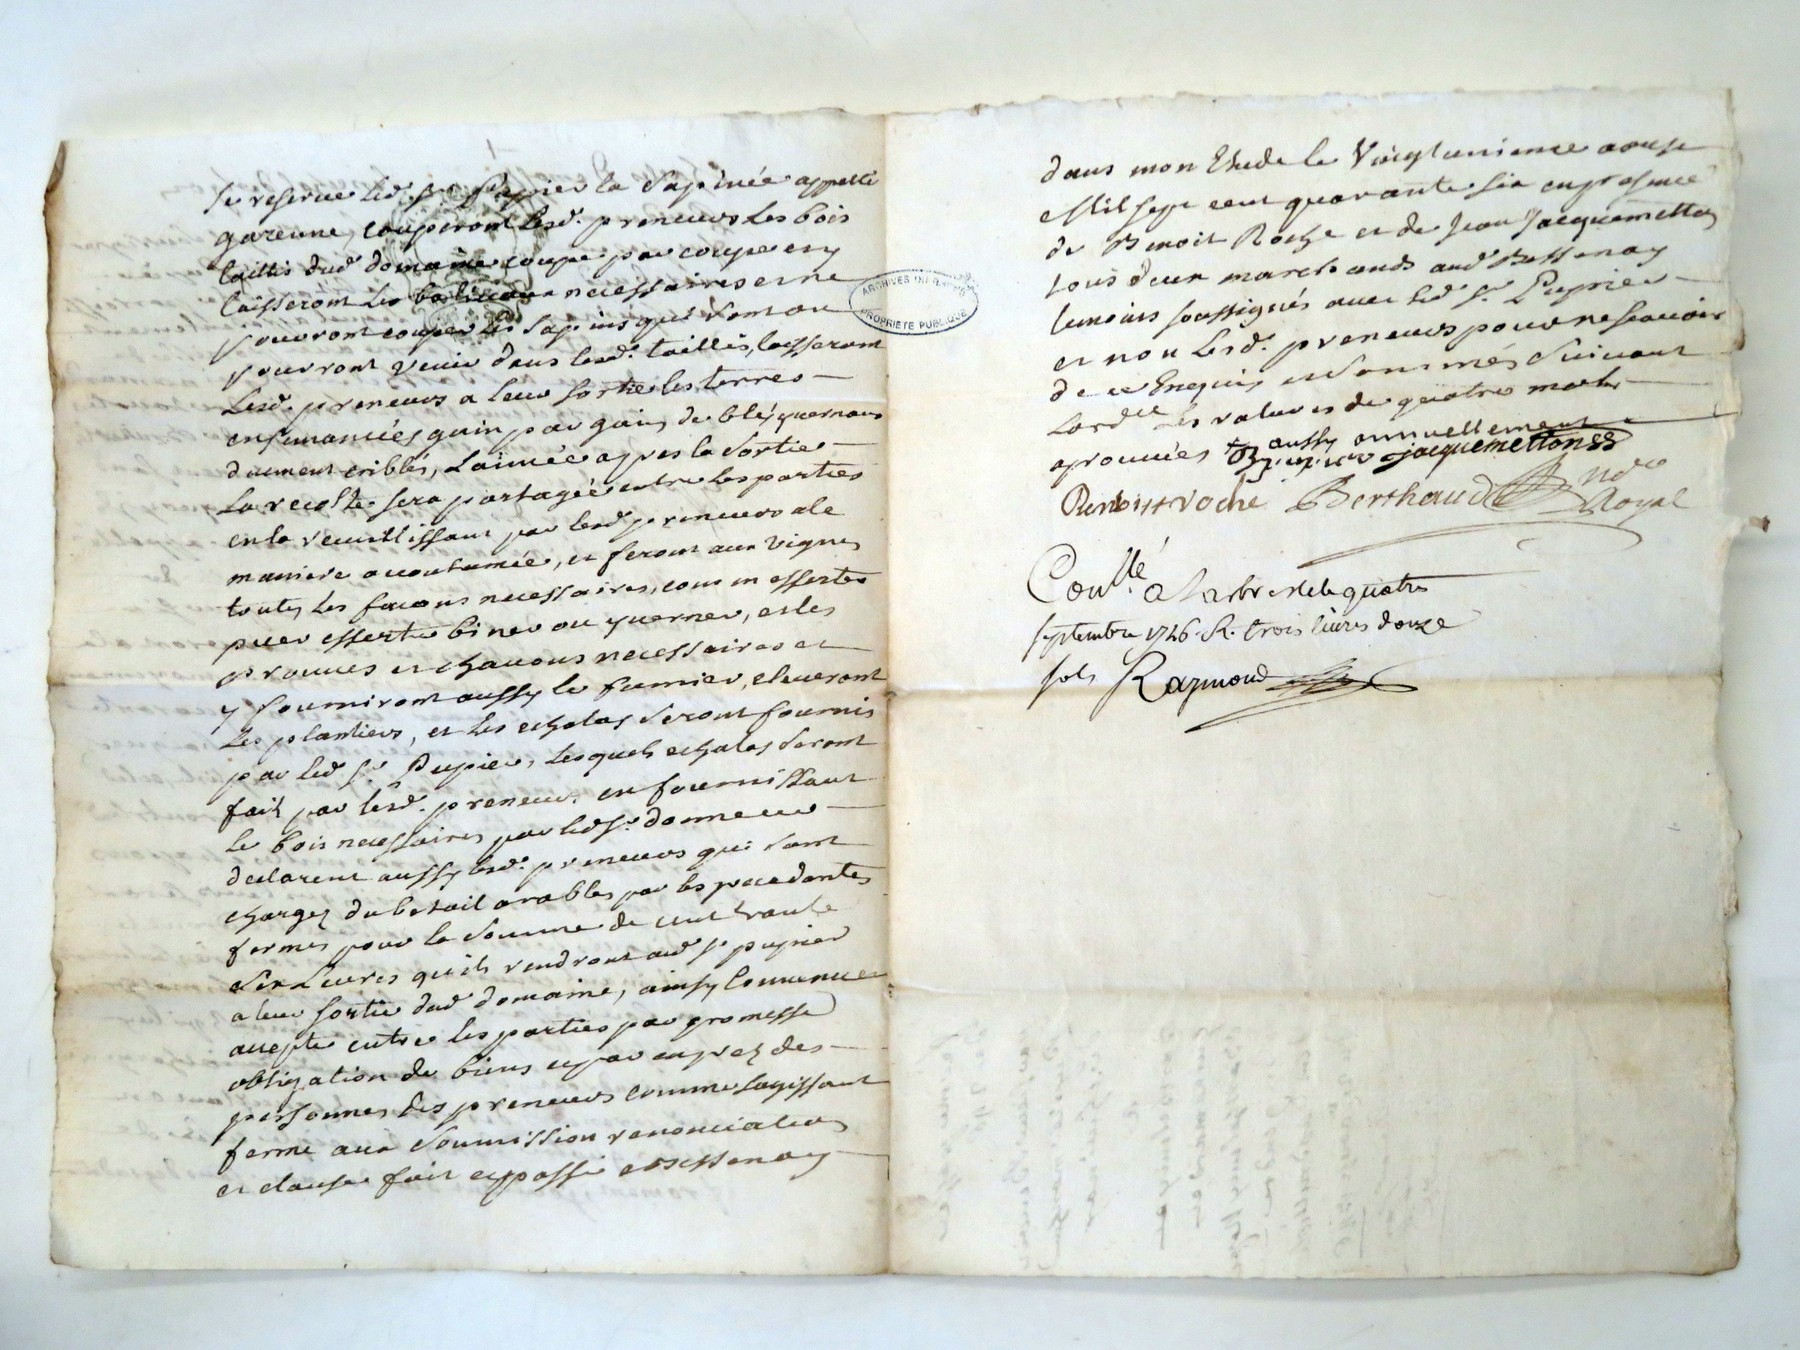 se reserve led. Sr. Pupier la sapinée appellé
garenne, couperont lesd. preneurs les bois
taillis dud. domaine coupe par coupe en y
laisseront les baliveaux necessaires et ne
pouvront couper les sapins qui sont ou
pouvront venir dans lesd. taillis, laisseront
lesd. preneurs a leur sortie les terres
ensemancées grain par grain, de bléz
duement criblés, l'année apres la sortie
la recolte sera partagée entre les parties
en la receuillissant par lesd. preneurs a la
maniere accoutumée, et feront aux vignes
toutes les facons necessaires, comm
biner ou et les
provues et necessaires et
y fourniront aussy le fumier, eleveront
les plantiers, et les echalas seront fournis
par led. Sr. Pupier, lesquels echalas seront
fait par lesd. preneurs en fournissant
le bois necessaires par led. Sr. donneur
declarent aussy lesd. preneurs qui sont
chargez du betail arables par les precedantes
fermes pour la somme de cent trante
six livres qu'ils rendront aud. Sr. pupier
a leur sortie dud. domaine, ainsy convenu
accepté entre les parties par promesse
obligation de biens
personnes des preneurs comme s'agissant
ferme aux soumission renonciation
et clause fait et passé a Bessenay
ARCHIVES
PROPRIETE PUBLIQUE
dans mon Etude le vingtunieme aoust
mil sept cent quarante six en presence
de Benoit Roche et de Jean Jacquemetton
tous deux marchands aud. Bessenay
temoins soussignés avec led. Sr. Pupier
et non lesd. preneurs pour ne scavoir
de ce Enquis et sommés suivant
Lordce les ratures de quatre mots
aprouvées + aussy annuellement
jacquemetton
Benoist roche Berthaud nore Royal
Conllé a Larbresle le quatre
septembre 1746 R. trois livres douze
sols Raymond